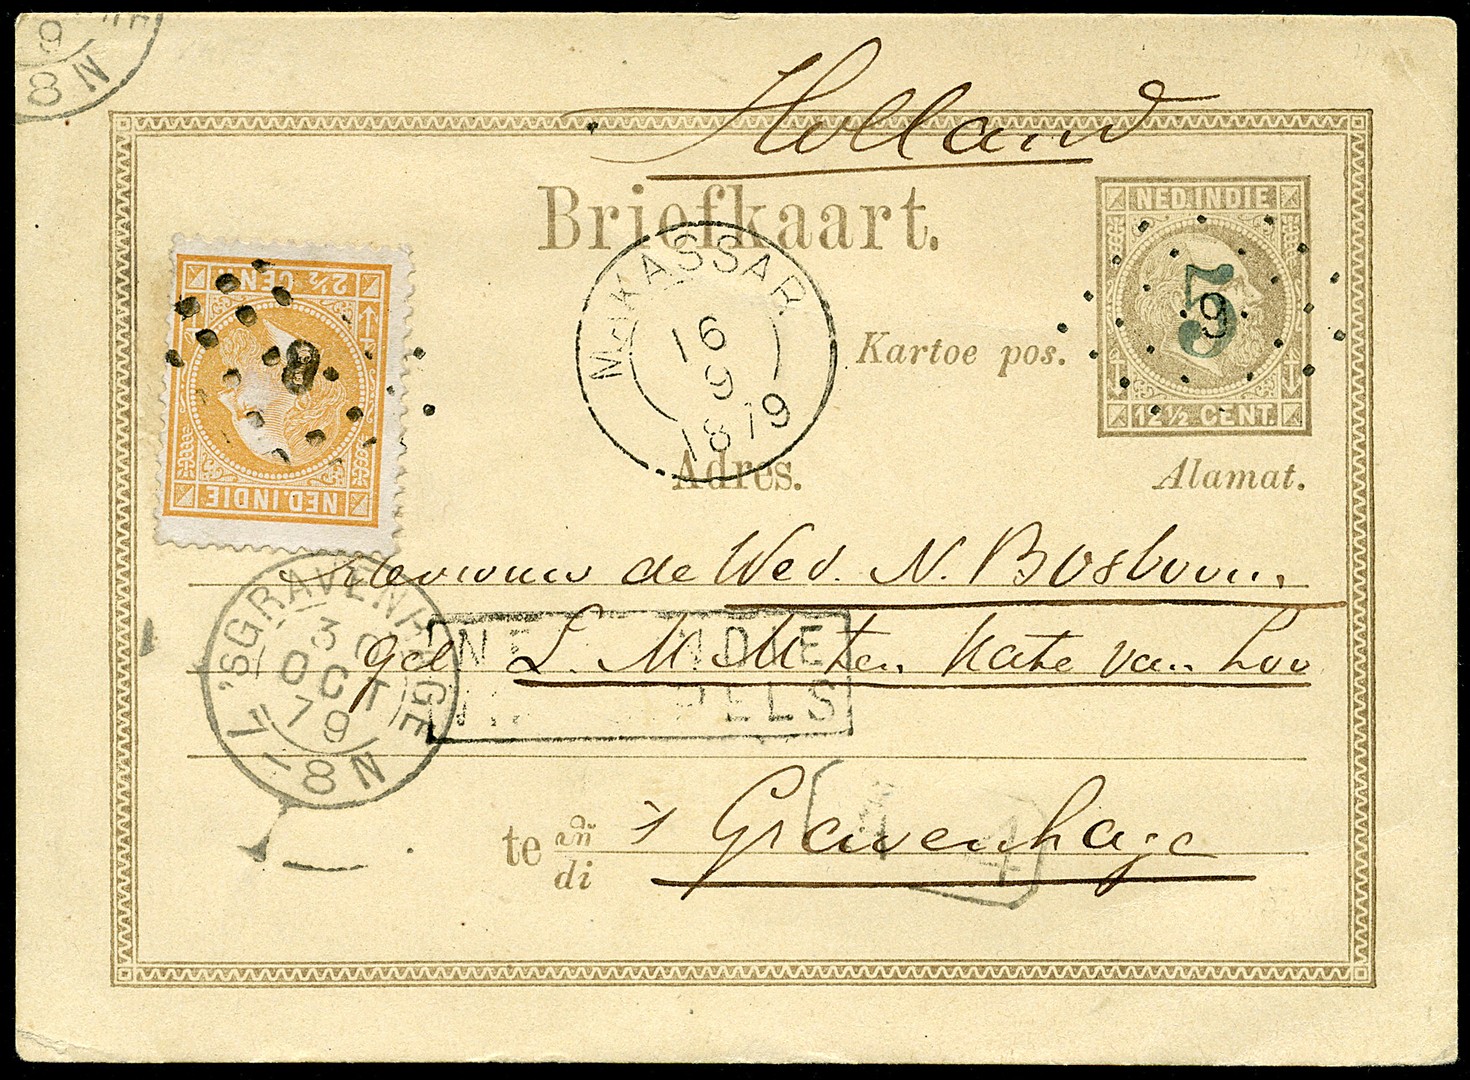 Holland
Briefkaart.
NED. INDIE
5
9
12½ CENT.
Kartoe pos.
Alamat.
Adres.
MAKASSAR
16
9
1879
2½ CENT.
8
NED. INDIE
8 N
9
de Wed. N. Bosboom
geb L. M. M. ten Kate van Loo
'SGRAVENHAGE
30
OCT
79
7-18N
NED. INDIE
te di
's Gravenhage
4